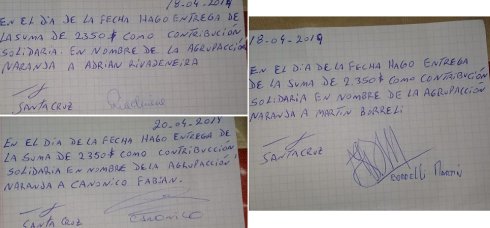 18-04-2019
EN EL DIA DE LA FECHA HAGO ENTREGA DE
LA SUMA DE 2350$ COMO CONTRIBUCIÓN
SOLIDARIA. EN NOMBRE DE LA AGRUPACCIÓN
NARANJA A ADRIAN RIVADENEIRA
SANTACRUZ
20-04-2019
EN EL DIA DE LA FECHA HAGO ENTREGA DE
LA SUMA DE 2350$ COMO CONTRIBUCCIÓN
SOLIDARIA EN NOMBRE DE LA AGRUPACCIÓN
NARANJA A CANONICO FABIAN.
SANTA CRUZ
CANONICO
18-04-2019
EN EL DIA DE LA FECHA HAGO ENTREGA
DE LA SUMA DE 2,350$ COMO CONTRIBUCIÓN
SOLIDARIA EN NOMBRE DE LA AGRUPACCIÓN
NARANJA A MARTIN BORRELI
SANTACRUZ
BORRELLI MARTIN